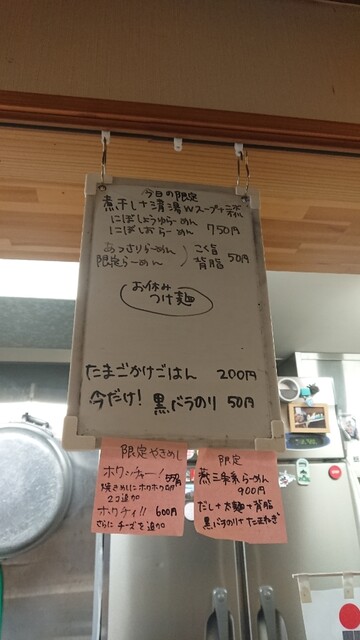 今日の限定
煮干し+清湯Wスープ+
にぼしょうゆらーめん
にぼしおらーめん 750円
あっさりらーめん
限定らーめん
こく旨
背脂 50円
お休み
つけ麺
たまごかけごはん 200円
今だけ! 黒バラのり 50円
限定やきめし
ホワンチャー!
焼きめしにホワホワ卵
2コ追加
ホワチィ!! 600円
さらにチーズを追加
限定
燕三条系らーめん
900円
だし+太麺+背脂
黒バラのり+たまねぎ